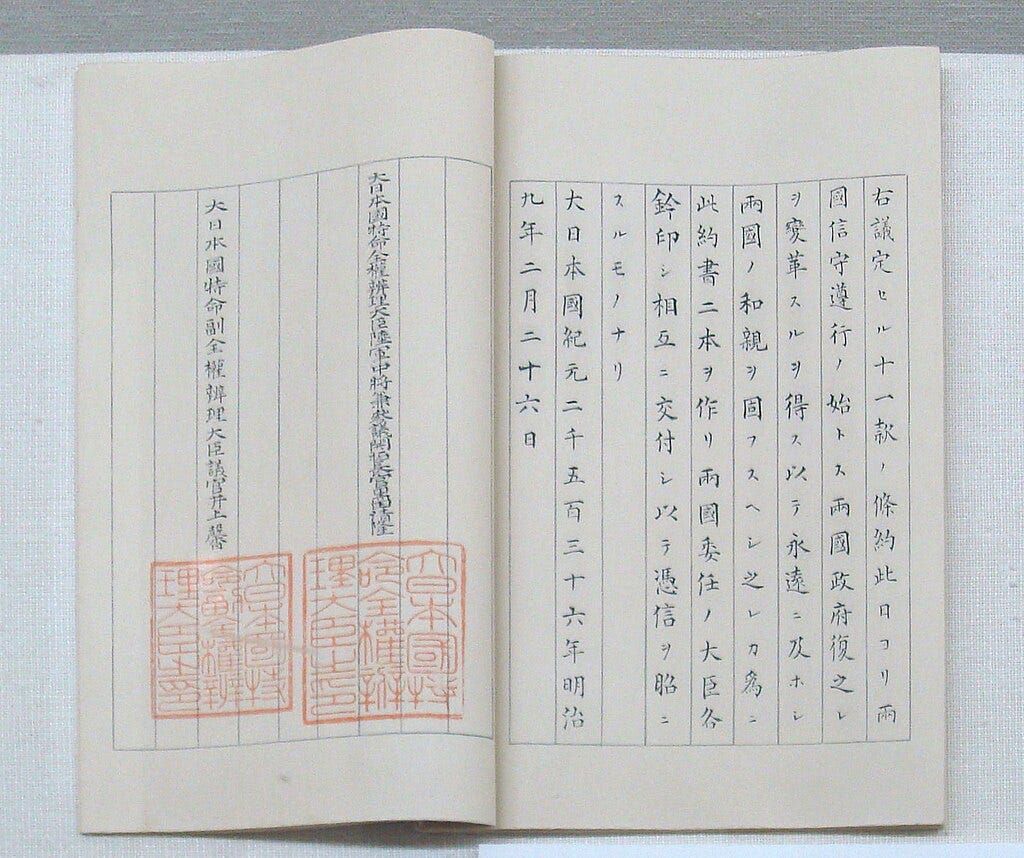 右議定セル十一款ノ條約此日ヨリ兩
國信守遵行ノ始トス兩國政府復之レ
ヲ變革スルヲ得ス以テ永遠ニ及ホシ
兩國ノ和親ヲ固フスヘシ之レカ爲ニ
此約書二本ヲ作リ兩國委任ノ大臣各
鈐印シ相互ニ交付シ以テ憑信ヲ昭ニ
スルモノナリ
大日本國紀元二千五百三十六年明治
九年二月二十六日
大日本國特命全權辨理大臣陸軍中將兼參議開拓長官黑田清隆
大日本國特
命全權辦
理大臣之印
大日本國特命副全權辨理大臣議官井上馨
大日本國特
命副全權辦
理大臣之印